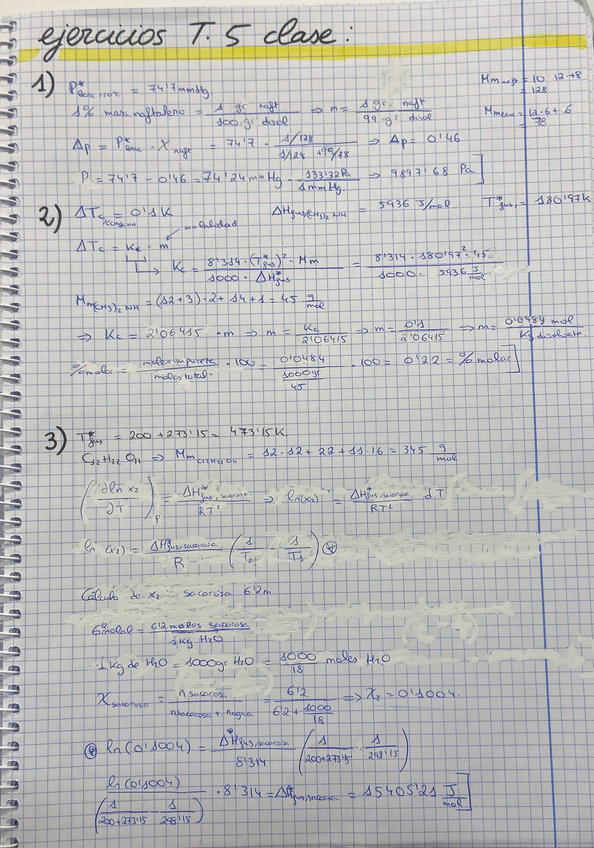 ejercicios T. 5 clase:
1) P*benceno = 74'7 mmHg.
Mm naft = 10·12+8 = 128
1% masa naftaleno = 1 gr naft / 100 gr disol ⇒ m = 1 gr naft / 99 gr disol
Mm benc = 12·6+6 = 78
Δp = P*benc · X naft = 74'7 · (1/128) / (1/128 + 99/78) ⇒ Δp = 0'46
P = 74'7 - 0'46 = 74'24 mmHg · 133'32 Pa / 1 mmHg ⇒ 9897'68 Pa
2) ΔTc = 0'1 K ΔHfus(CH3)2NH = 5936 J/mol T*fus = 180'97K
molalidad
ΔTc = Kc · m
Kc = 8'314·(T*fus)²·Mm / 1000·ΔH*fus = 8'314·180'97²·45 / 1000·5936 J/mol
Mm(CH3)2NH = (12+3)·2+14+1 = 45 g/mol
⇒ Kc = 2'06415 · m ⇒ m = Kc / 2'06415 ⇒ m = 0'1 / 2'06415 ⇒ m = 0'0484 mol / Kg disolvente
% molar = moles impureza / moles total · 100 = 0'0484 / (1000gr / 45) · 100 = 0'22 = % molar
3) T*fus = 200 + 273'15 = 473'15 K.
C12H22O11 ⇒ Mm C12H22O11 = 12·12+22+11·16 = 345 g/mol
(∂ln x2 / ∂T)p = ΔH*fus,sacarosa / RT² ⇒ ln(x2) = ΔH*fus,sacarosa / RT² dT
ln(x2) = ΔH*fus,sacarosa / R (1/T2 - 1/T1) ⊛
Cálculo de x2 sacarosa 6'2m
6'2 molal = 6'2 moles sacarosa / 1 kg H2O
1 Kg de H2O = 1000gr H2O = 1000/18 moles H2O
X sacarosa = n sacarosa / n sacarosa + n agua = 6'2 / (6'2 + 1000/18) ⇒ X2 = 0'1004.
⊛ ln(0'1004) = ΔH*fus,sacarosa / 8'314 (1/200+273'15 - 1/298'15)
ln(0'1004) / (1/200+273'15 - 1/298'15) · 8'314 = ΔH*fus,sacarosa = 15405'21 J/mol